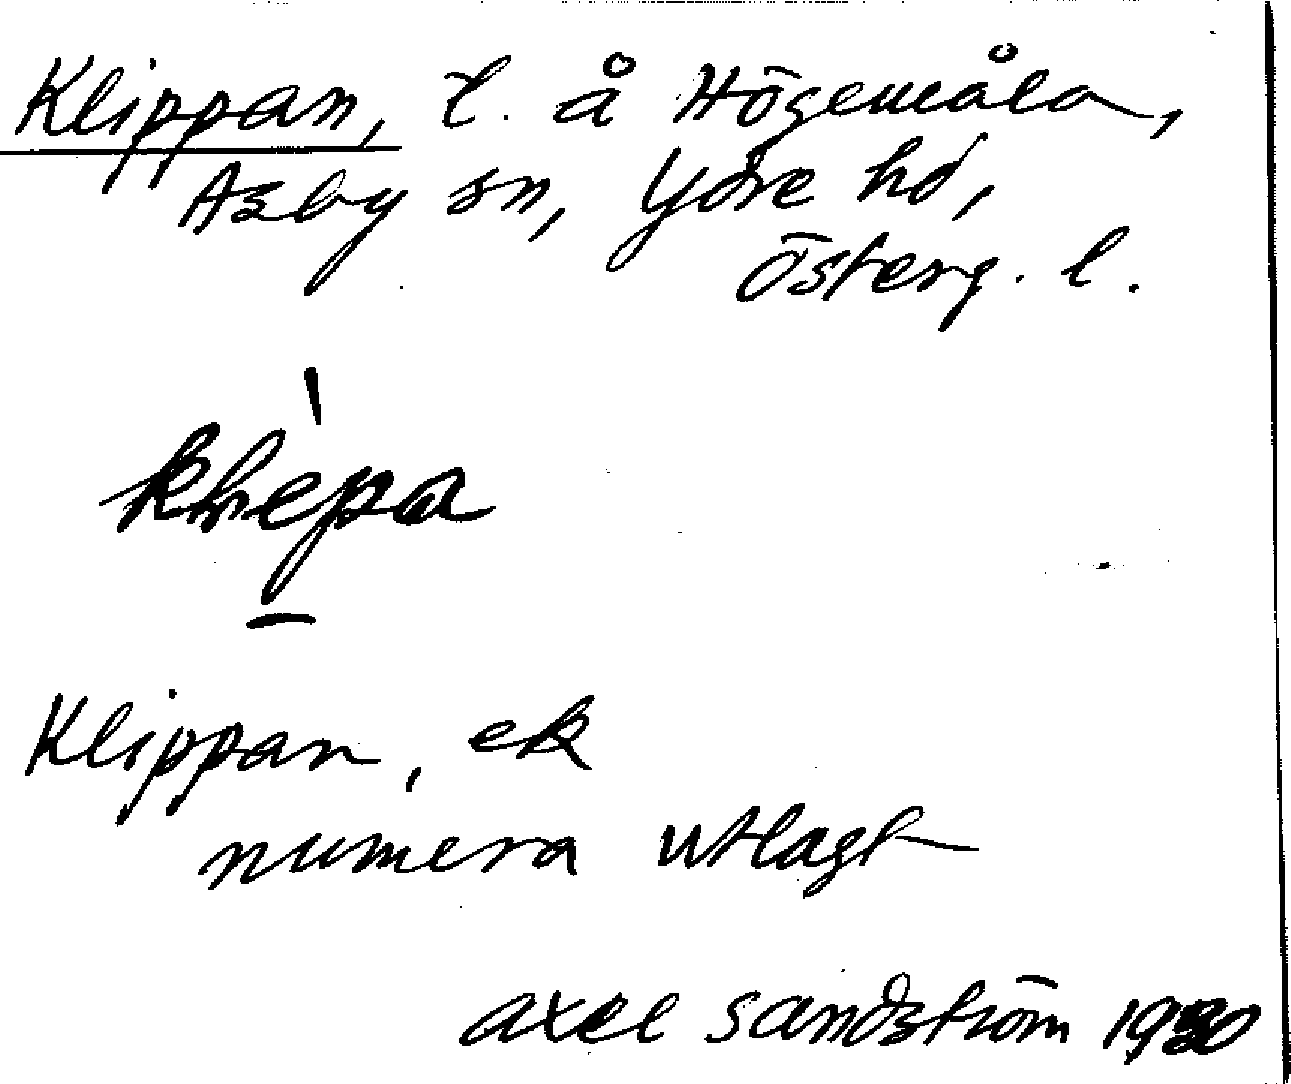 Klippan, l. å Högemåla,
Asby sn, Ydre hd,
Österg. l.
Klippan, ek
numera utlagt
Axel Sandström 1930